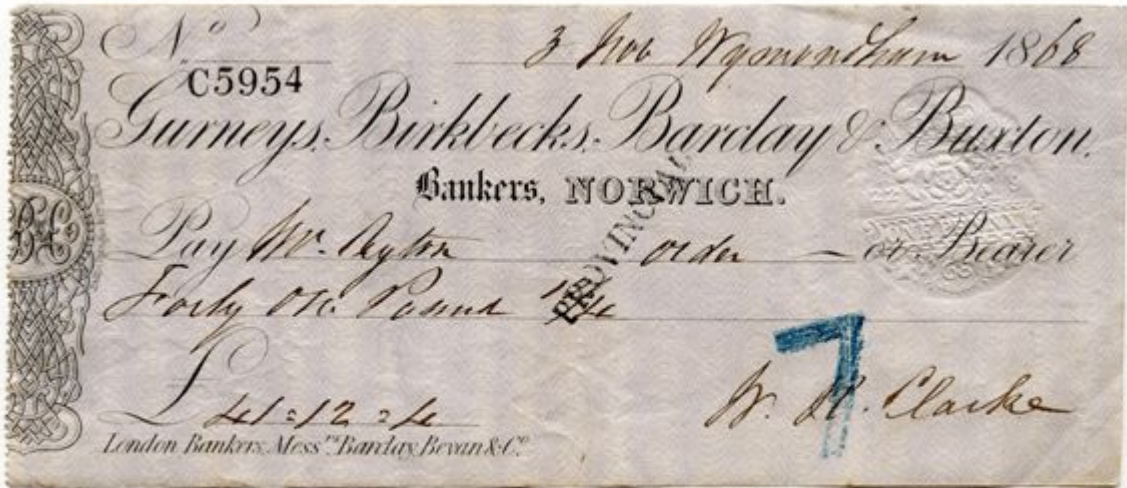 No 3 Nov Wymondham 1868
C5954
Gurneys, Birkbecks, Barclay & Buxton.
Bankers, NORWICH.
PROVINCIAL
Pay Mr. order or Bearer
Forty One Pound 12/4
£ 41=12=4
W. Clarke
7
London Bankers, Messrs. Barclay, Bevan & Co.